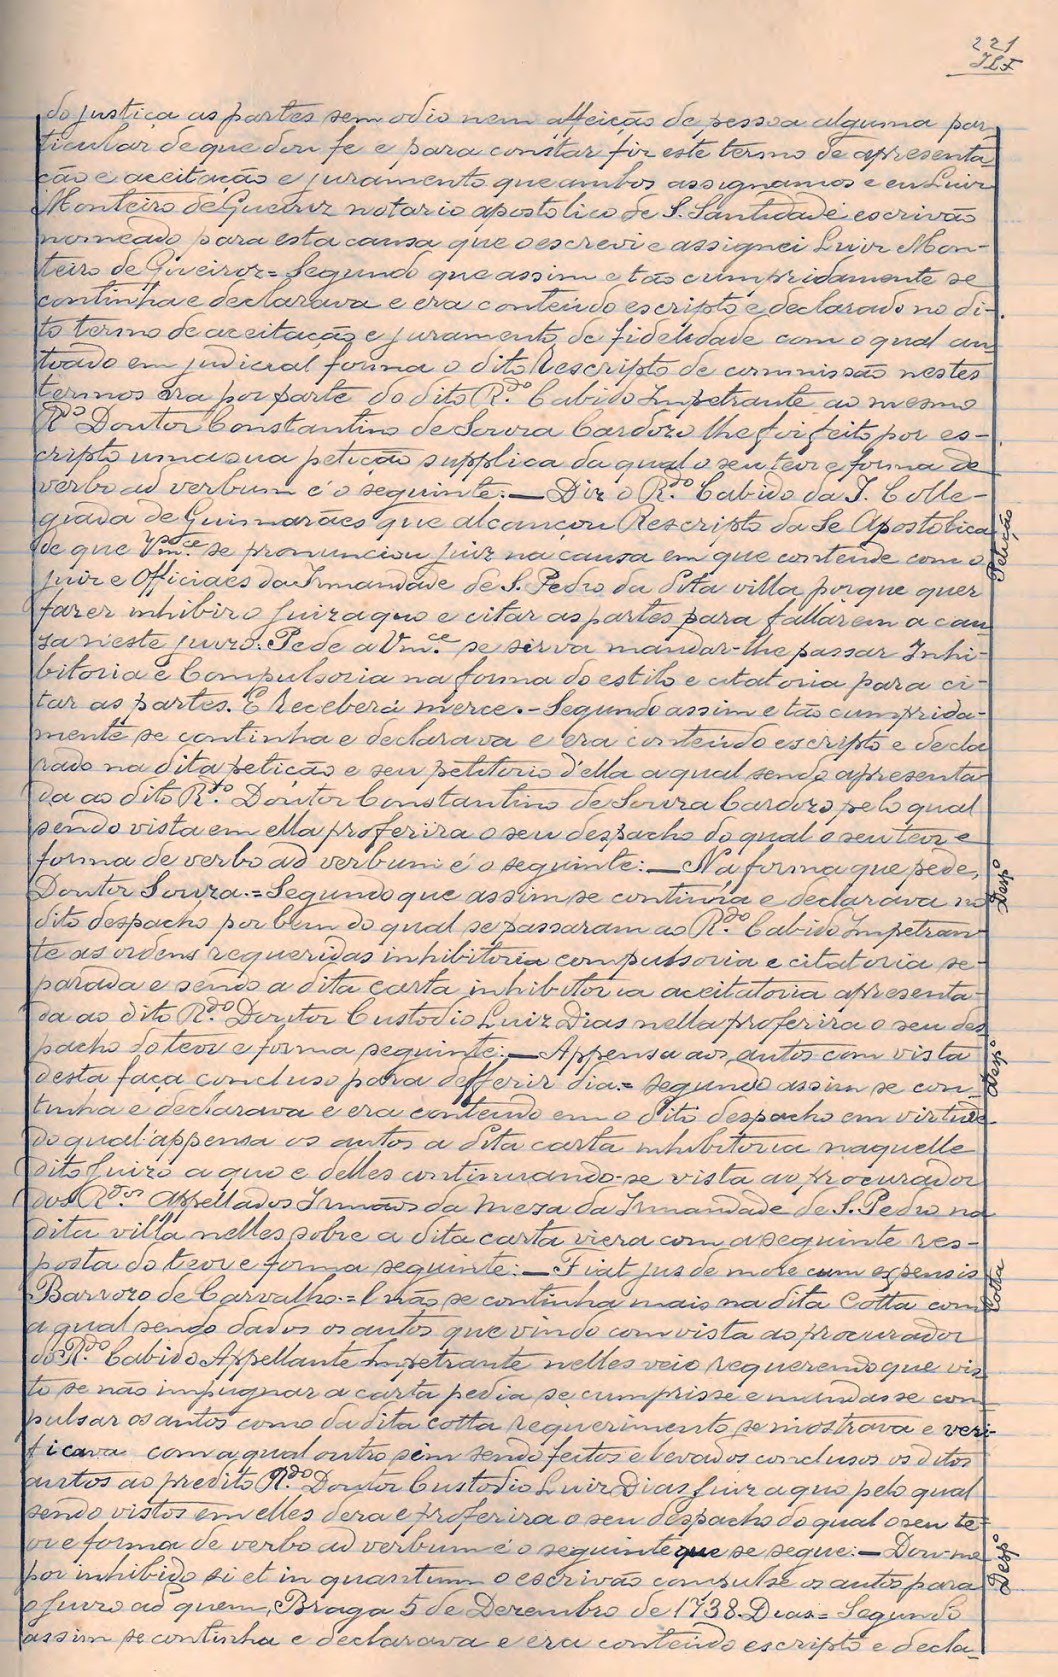 221
JLF
do justiça as partes sem odio nem affeição de pessoa alguma par
ticular de que dou fe e para constar fiz este termo de apresenta
ção e aceitação e juramento que ambos assignamos e eu Luiz
Monteiro de Gueiroz notario apostolico de S. Santidade escrivão
nomeado para esta causa que o escrevi e assignei Luiz Mon-
teiro de Queiroz = Segundo que assim e tão cumpridamente se
continha e declarava e era conteúdo escripto e declarado no di-
to termo de aceitação e juramento de fidelidade com o qual au
toado em judicial forma o dito Rescripto de commissão nestes
termos era por parte do dito R.do Cabido Impetrante ao mesmo
R.do Doutor Constantino de Souza Cardozo lhe foi feito por es-
cripto uma sua petição supplica da qual o seu teor e forma de
verbo ad verbum é o seguinte: — Diz o R.do Cabido da I. Colle-
giada de Guimarães que alcançou Rescripto da Se Apostolica
de que Vm.ce se pronunciou juiz na causa em que contende com o
Petição
Juiz e Officiaes da Irmandade de S. Pedro da dita villa porque quer
fazer inhibir o Juiz a quo e citar as partes para fallarem a cau
sa n'este juizo. Pede a Vm.ce se sirva mandar-lhe passar Inhi-
bitoria e Compulsoria na forma do estilo e citatoria para ci-
tar as partes. E Receberá merce. - Segundo assim e tão cumprida-
mente se continha e declarava e era conteúdo escripto e decla
rado na dita petição e seu petitorio d'ella a qual sendo apresenta
da ao dito R.do Doutor Constantino de Souza Cardozo pelo qual
sendo vista em ella proferira o seu despacho do qual o seu teor e
forma de verbo ad verbum é o seguinte: — Na forma que pede,
Desp.o
Doutor Souza. = Segundo que assim se continha e declarava no
dito despacho por bem do qual se passaram ao R.do Cabido Impetran-
te as ordens requeridas inhibitoria compulsoria e citatoria se-
parada e sendo a dita carta inhibitoria aceitatoria apresenta-
da ao dito R.do Doutor Custodio Luiz Dias nella proferira o seu des
pacho do teor e forma seguinte: — Appensa aos autos com vista
Desp.o
desta faça concluso para defferir dia. = segundo assim se con-
tinha e declarava e era conteudo em o dito despacho em virtude
do qual appensa os autos a dita carta inhibitoria naquelle
dito Juizo a quo e delles continuando-se vista ao procurador
dos R.dos Appellados Irmãos da Meza da Irmandade de S. Pedro na
dita villa nelles sobre a dita carta viera com a seguinte res-
posta do teor e forma seguinte: — Fiat jus de more cum expensis
Cotta
Barrozo de Carvalho. = E não se continha mais na dita Cotta com
a qual sendo dados os autos que vindo com vista ao procurador
do R.do Cabido Appellante Impetrante nelles veio requerendo que vis
to se não impugnar a carta pedia se cumprisse e mandasse com
pulsar os autos como da dita cotta requerimento se mostrava e veri-
ficava com a qual outro sim sendo feitos e levados conclusos os ditos
autos ao predito R.do Doutor Custodio Luiz Dias Juiz a quo pelo qual
sendo vistos em elles dera e proferira o seu despacho do qual o seu te-
or e forma de verbo ad verbum é o seguinte que se segue: — Dou-me
Desp.o
por inhibido si et in quantum o escrivão compulse os autos para
o Juizo ad quem, Braga 5 de Dezembro de 1738. Dias = Segundo
assim se continha e declarava e era conteúdo escripto e decla-